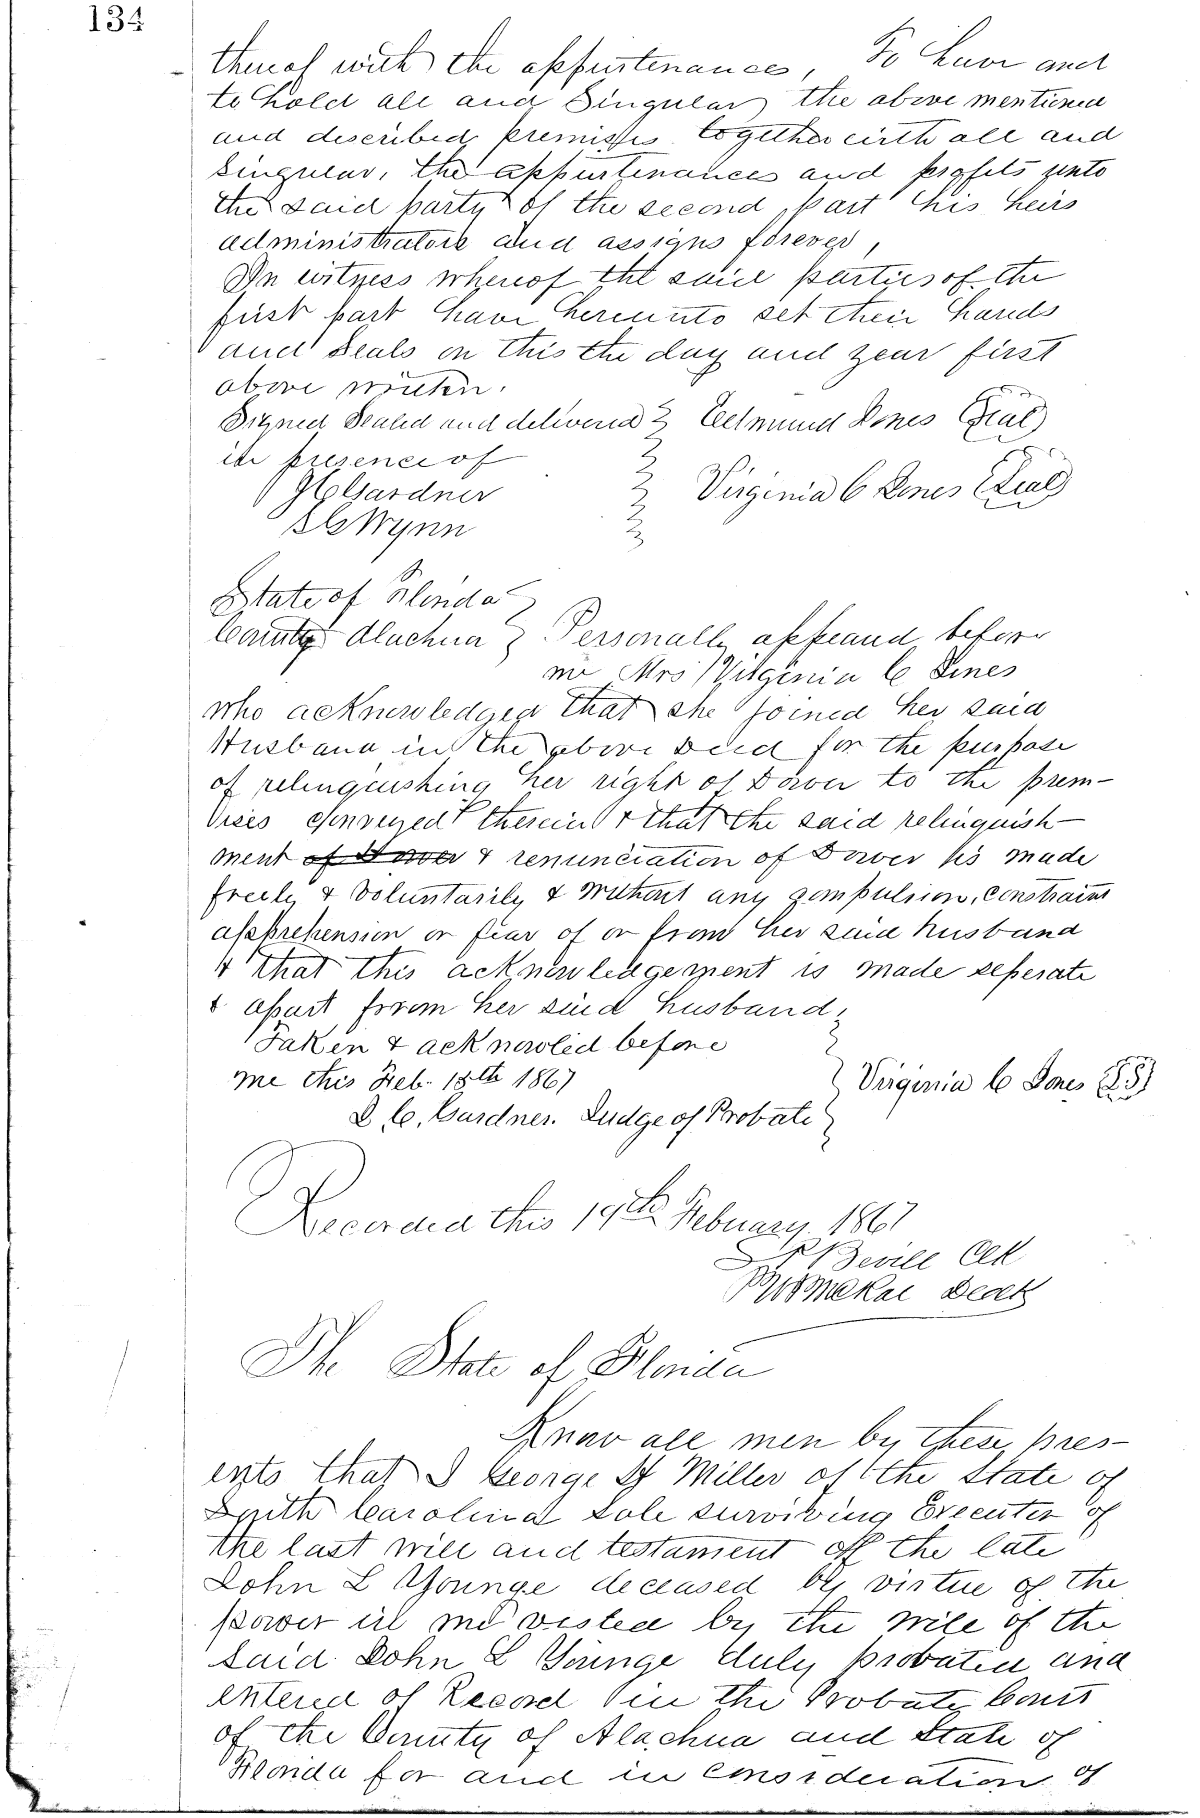 134
thereof with the appurtenances, To have and
to hold all and Singular the above mentioned
and described premises together with all and
singular, the appurtenances and profits unto
the said party of the second part his heirs
administrators and assigns forever,
In witness whereof the said parties of the
first part have hereunto set their hands
and Seals on this the day and year first
above written.
Signed Sealed and delivered Edmund Jones (Seal)
in presence of
Gardner Virginia C Jones (Seal)
Wynn
State of Florida
County Alachua Personally appeard before
me Mrs Virginia C Jones
who acknowledged that she joined her said
Husband in the above Deed for the purpose
of relinquishing her right of Dower to the prem-
ises conveyed therein & that the said relinquish-
ment of Dower & renunciation of Dower is made
freely & Voluntarily & without any compulsion, constraint
apprehension or fear of or from her said husband
& that this acknowledgement is made seperate
& apart from her said husband,
Taken & acknowled before
me this Feb. 18th 1867 Virginia C Jones (LS)
D. C. Gardner. Judge of Probate
Recorded this 19th February 1867
Bevill Clk
McRae D Clk
The State of Florida
Know all men by these pres-
ents that I George H Miller of the State of
South Carolina sole surviving Executor of
the last will and testament of the late
John L Younge deceased by virtue of the
power in me vested by the will of the
said John L Younge duly probated and
entered of Record in the Probate Court
of the County of Alachua and State of
Florida for and in consideration of